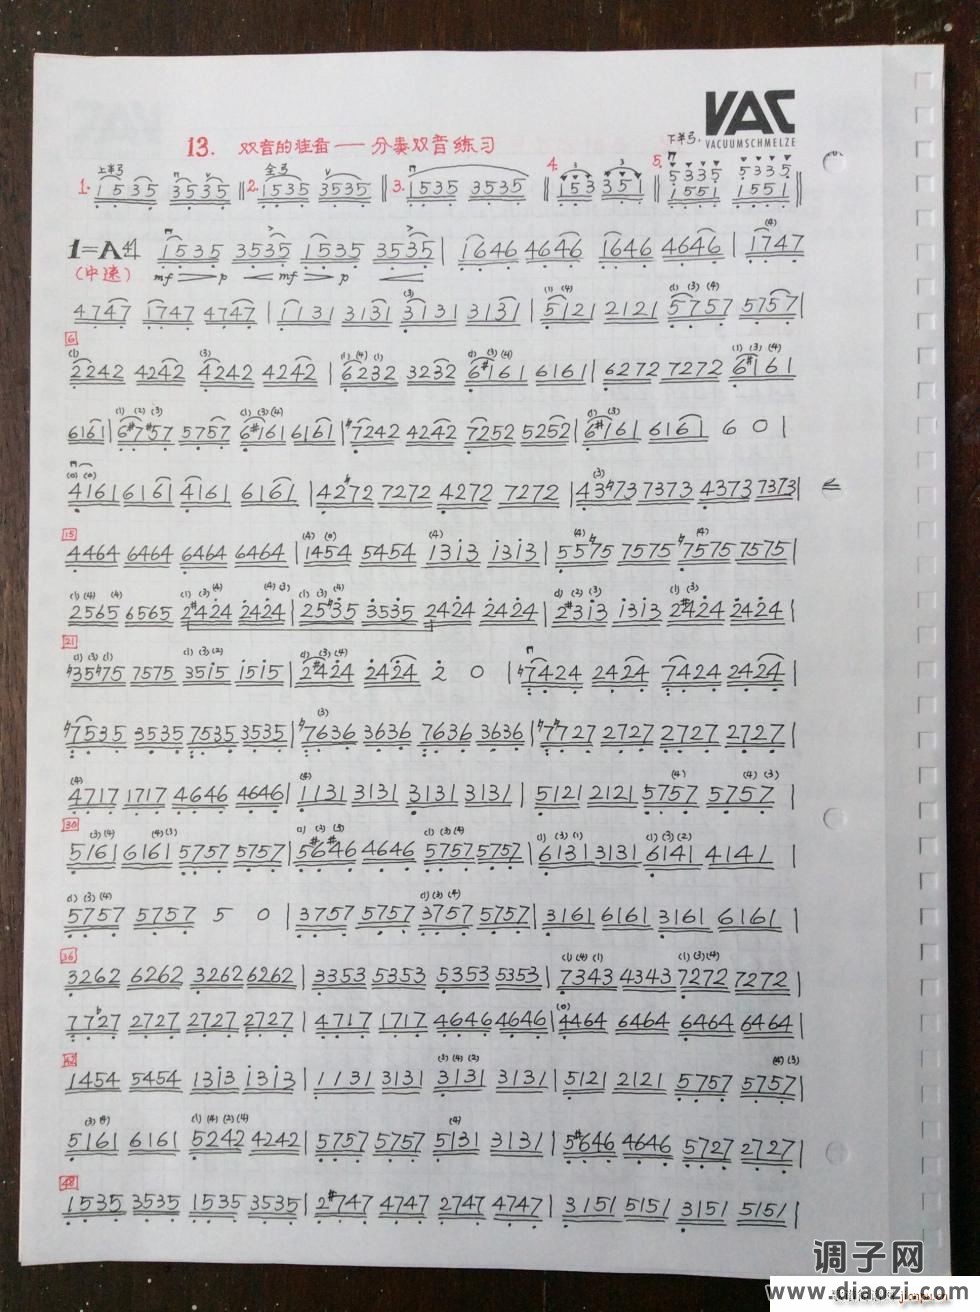 VAC
VACUUMSCHMELZE
13. 双音的准备——分奏双音练习
下半弓
上半弓 全弓
1. 1535 3535 ‖ 2. 1535 3535 ‖ 3. 1535 3535 ‖ 4. 153 351 ‖ 5. 5335 5335
1551 1551
1=A 4/4 1535 3535 1535 3535 | 1646 4646 1646 4646 | 1747
(中速) mf p mf p
4747 1747 4747 | 1131 3131 3131 3131 | 5121 2121 5757 5757
6
2242 4242 4242 4242 | 6232 3232 6#161 6161 | 6272 7272 6#161
6161 | 6#7#57 5757 6#161 6161 | ♮7242 4242 7252 5252 | 6#161 6161 6 0 |
4161 6161 4161 6161 | 42♮72 7272 4272 7272 | 43♮73 7373 4373 7373 |
15
4464 6464 6464 6464 | 1454 5454 1313 1313 | 55♮75 7575 ♮7575 7575 |
2565 6565 2#424 2424 | 25♮35 3535 2424 2424 | 2#313 1313 2#424 2424 |
21
♮35♮75 7575 3515 1515 | 2#424 2424 2 0 | ♮7424 2424 7424 2424 |
♮7535 3535 7535 3535 | ♮7636 3636 7636 3636 | ♮7♮727 2727 2727 2727 |
4717 1717 4646 4646 | 1131 3131 3131 3131 | 5121 2121 5757 5757 |
30
5161 6161 5757 5757 | 5#6#46 4646 5757 5757 | 6131 3131 6141 4141 |
5757 5757 5 0 | 3757 5757 3757 5757 | 3161 6161 3161 6161 |
36
3262 6262 3262 6262 | 3353 5353 5353 5353 | 7343 4343 7272 7272 |
77♭27 2727 2727 2727 | 4717 1717 4646 4646 | 4464 6464 6464 6464 |
42
1454 5454 1313 1313 | 1131 3131 3131 3131 | 5121 2121 5757 5757 |
5161 6161 5242 4242 | 5757 5757 5131 3131 | 5#646 4646 5727 2727 |
48
1535 3535 1535 3535 | 2#747 4747 2747 4747 | 3151 5151 3151 5151 |
调子网
www.diaozi.com